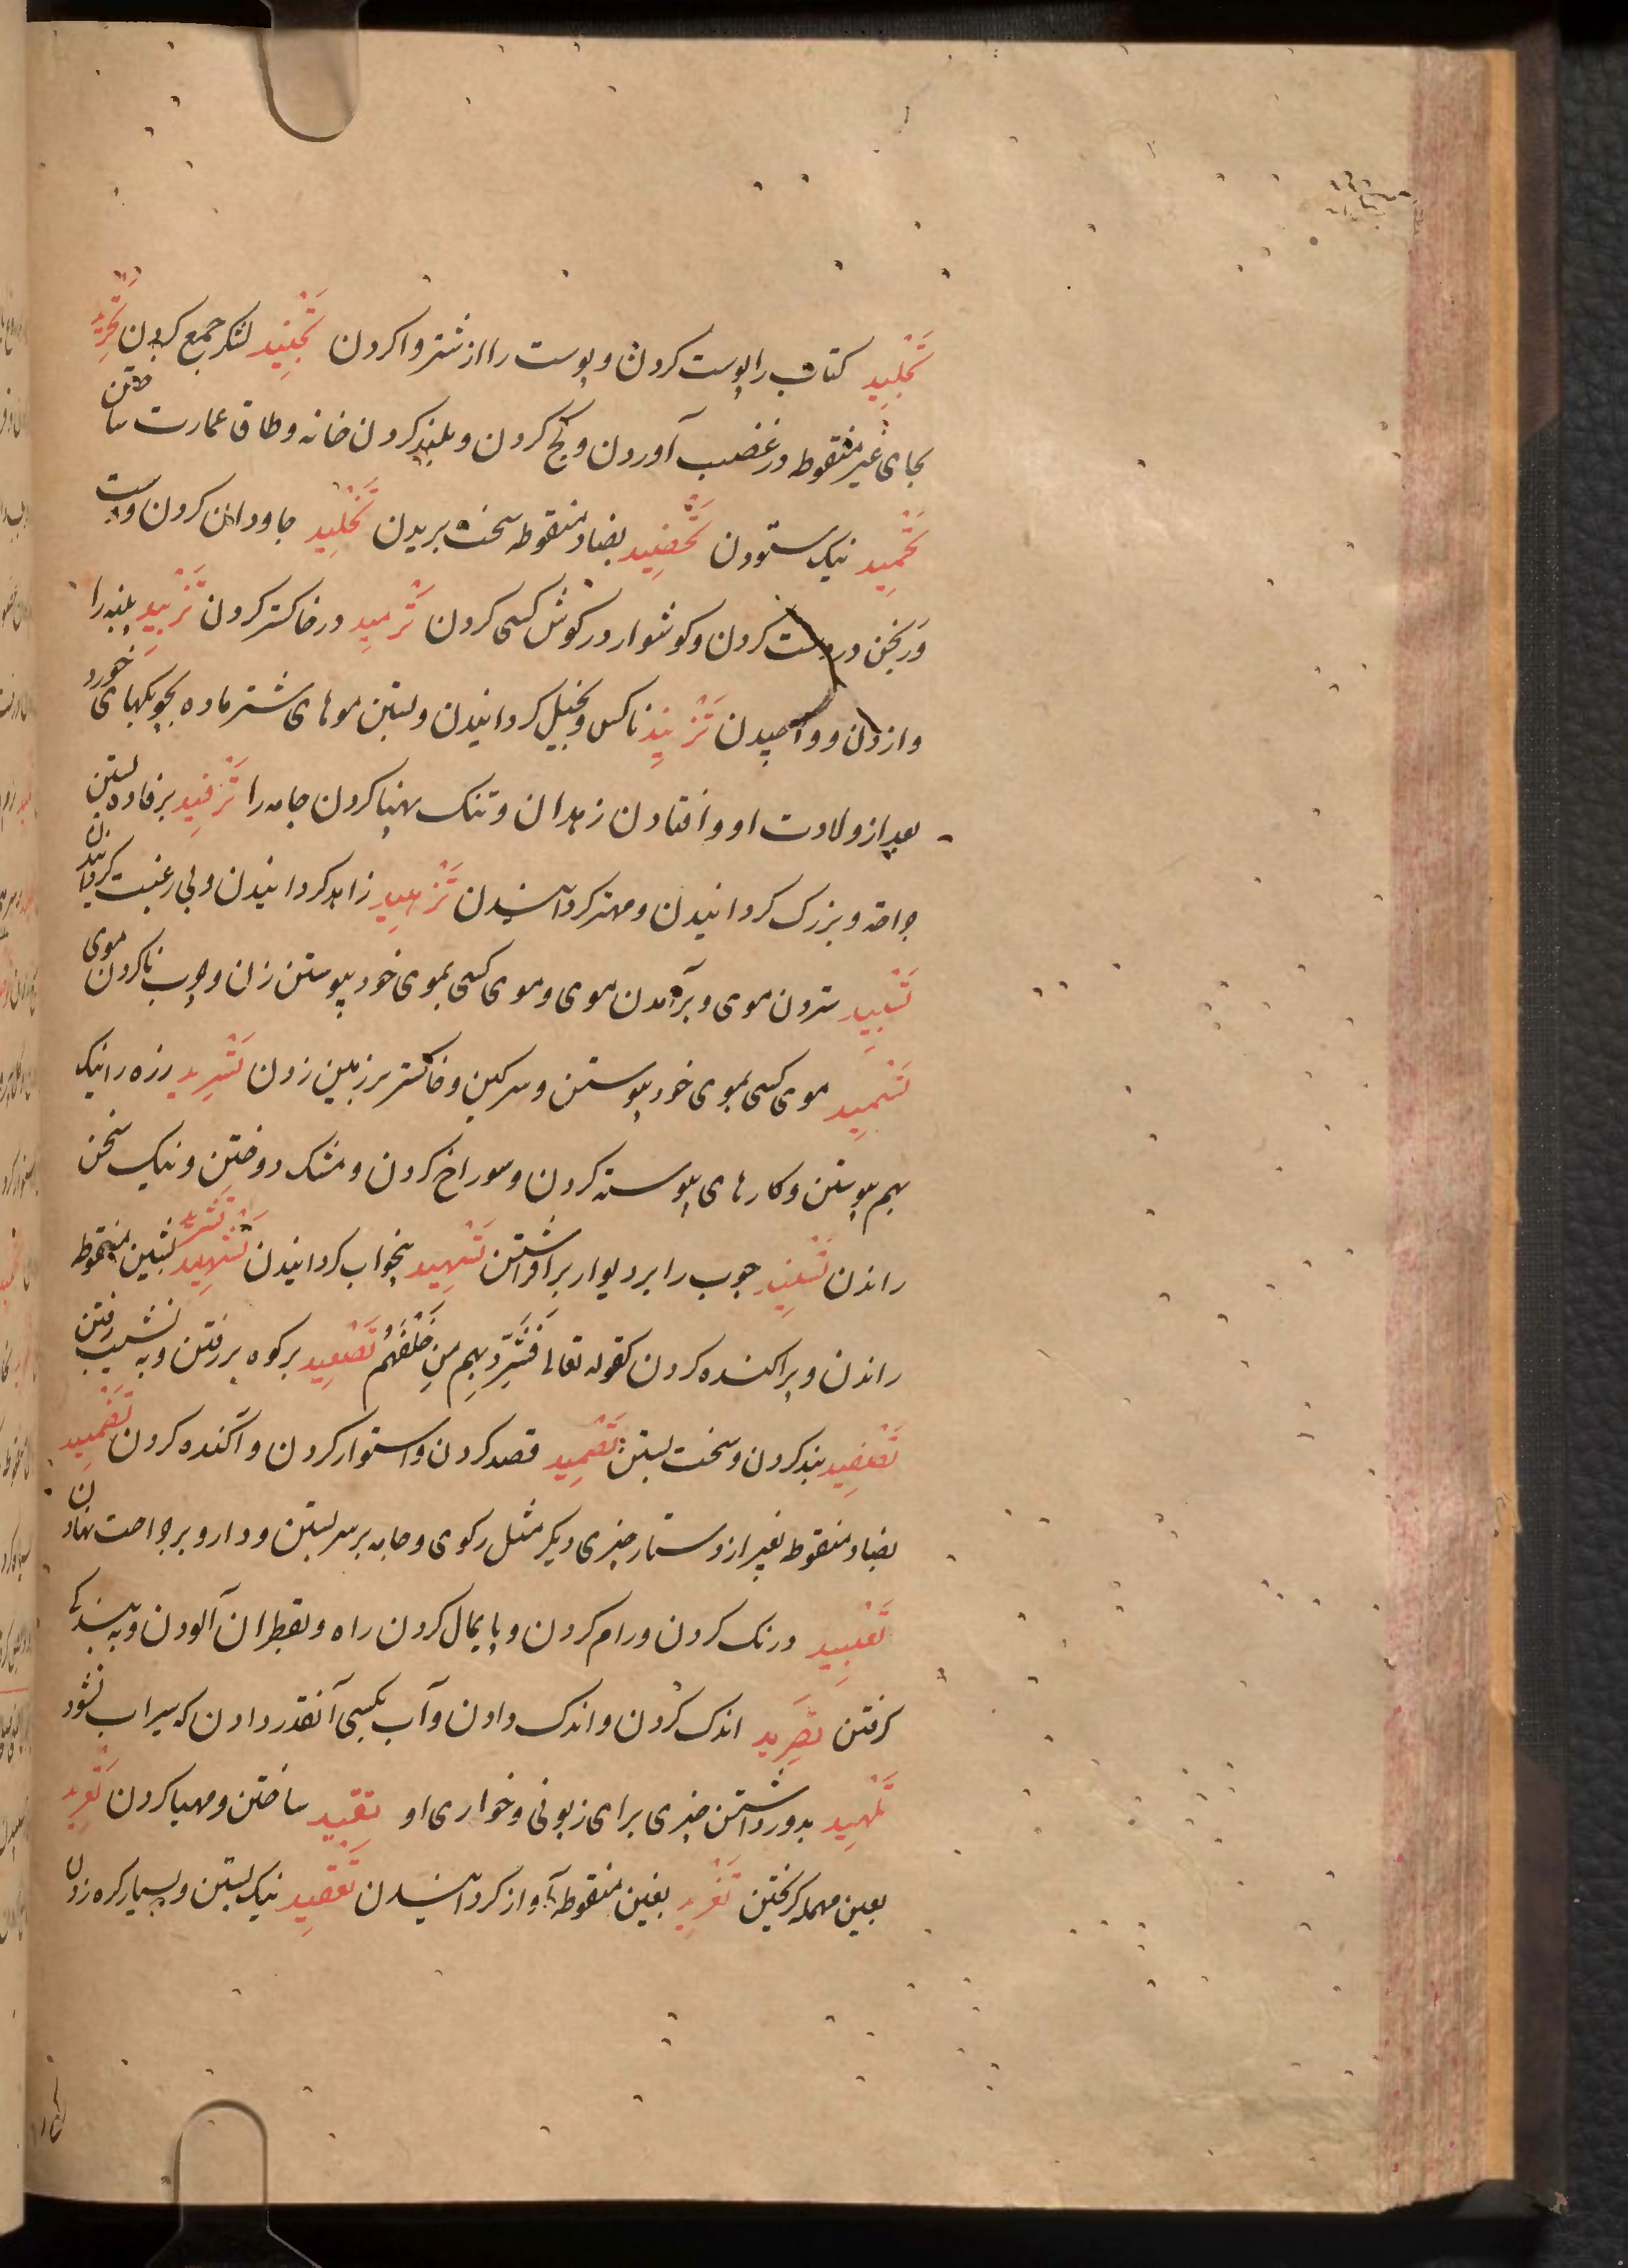 تَجْلِید کتاب را پوست کردن و پوست را از شتر وا کردن تَجْنِید لشکر جمع کردن تَحْرِید
بحای غیر منقوطه در غضب آوردن و کج کردن و بلند کردن خانه و طاق عمارت ساختن
تَحْمِید نیک ستودن تَخْضِید بضاد منقوطه سخت بریدن تَخْلِید جاودان کردن و دست
ورنجن در دست کردن و کوشوار در کوش کسی کردن تَرْمِید در خاکستر کردن تَزْبِید پنبه را
وازدن و تَزْنِید ناکس و بخیل کردانیدن و بستن موهای شتر ماده بچوبکهای خورد
بعد از ولادت او و افتادن زهدان و تنک پهنا کردن جامه را تَرْفِید برفاده بستن
جراحة و بزرک کردانیدن و مهتر کردانیدن تَزْهِید زاهد کردانیدن و بی رغبت کردانیدن
تَسْبِید ستردن موی و برآمدن موی و موی کسی بموی خود پیوستن زن و چرب ناکردن موی
تَسْمِید موی کسی بموی خود پیوستن و سرکین و خاکستر بر زمین زدن تَسْرِید زره را نیک
بهم پیوستن و کارهای پیوسته کردن و سوراخ کردن و مشک دوختن و نیک سخن
راندن تَسْنِید چوب را بر دیوار برافراشتن تَسْهِید بیخواب کردانیدن تَشْرِید بشین منقوطه
راندن و پراکنده کردن کقوله تعالی فَشَرِّدْ بِهِم مَنْ خَلْفَهُمْ تَصْعِید بر کوه بر رفتن و به نشیب رفتن
تَصْفِید بند کردن و سخت بستن تَصْمِید قصد کردن و استوار کردن و آکنده کردن تَضْمِید
بضاد منقوطه بغیر از دستار چیزی دیکر مثل رکوی و جامه بر سر بستن و دارو بر جراحت نهادن
تَعْبِید درنک کردن و رام کردن و پایمال کردن راه و بقطران آلودن و به بندکی
کرفتن تَصْرِید اندک کردن و اندک دادن و آب بکسی آنقدر دادن که سیراب نشود
تَلْهِید بدور داشتن چیزی برای زبونی و خواری او تَعْتِید ساختن و مهیا کردن تَعْرِید
بعین مهمله کریختن تَغْرِید بغین منقوطه آواز کردانیدن تَعْقِید نیک بستن و بسیار کره زدن